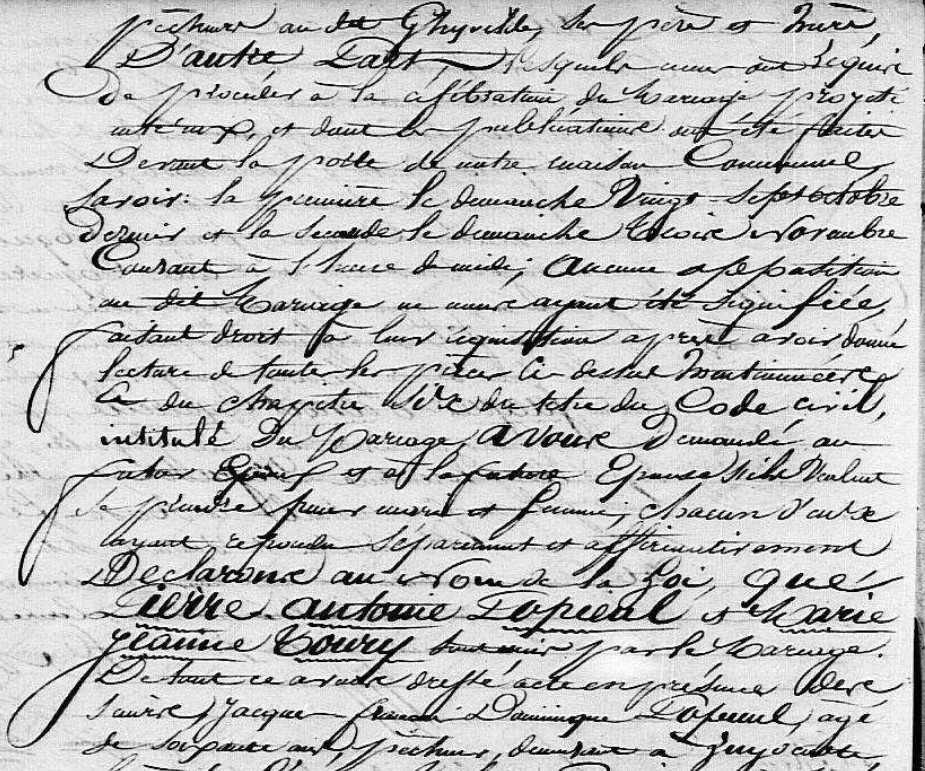 pêcheur au dit Ghyvelde, ses père et mère,
D'autre Part, lesquels nous ont Requis
De procéder à la célébration du Mariage projeté
entr'eux, et dont les publications ont été faites
Devant la porte de notre maison Commune,
savoir: la première le dimanche Vingt-Sept octobre
Dernier et la seconde le dimanche trois Novembre
Courant à l'heure de midi; Aucune opposition
au dit Mariage ne nous ayant été signifiée,
faisant droit à leur réquisition après avoir donné
lecture de toutes les pièces ci dessus Mentionnées,
Et du chapitre six du titre du Code civil,
intitulé Du Mariage, avons Demandé au
futur Epoux et à la future Epouse s'ils Veulent
se prendre pour mari et femme; chacun d'eux
ayant repondu séparement et affirmativement
Declarons au Nom de la Loi, que
Pierre Antoine Papieul et Marie
Jeanne Toury sont unis par le Mariage.
De tout ce avons dressé acte en présence des
sieurs Jacques Dominique Papieul, agé
de soixante ans, pêcheur, demeurant à Zuydcoote,